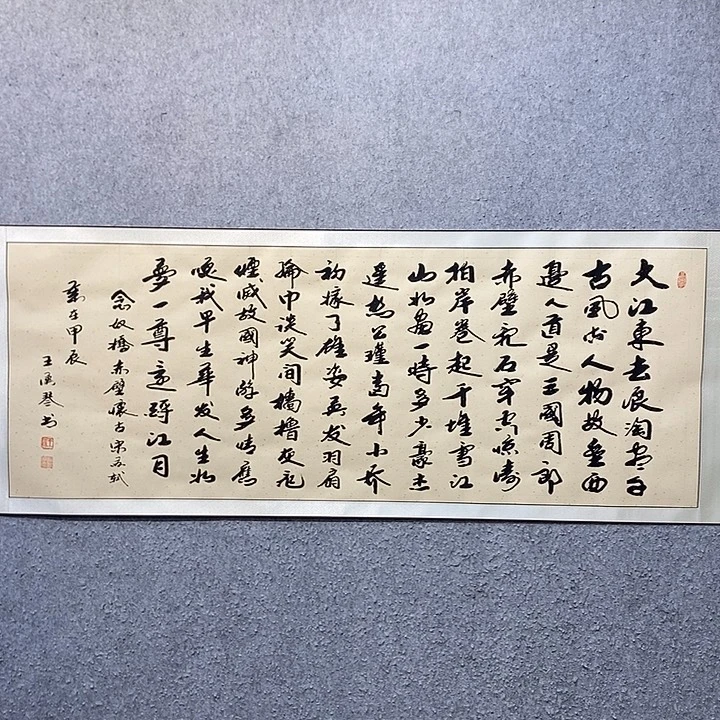 大江東去浪淘盡千
古風流人物故壘西
邊人道是三國周郎
赤壁乱石穿空惊濤
拍岸卷起千堆雪江
山如畫一時多少豪杰
遥想公瑾當年小喬
初嫁了雄姿英发羽扇
綸巾談笑間檣櫓灰飛
煙滅故國神游多情應
笑我早生華发人生如
夢一尊還酹江月
念奴嬌赤壁懷古宋苏轼
歲在甲辰
王琴书